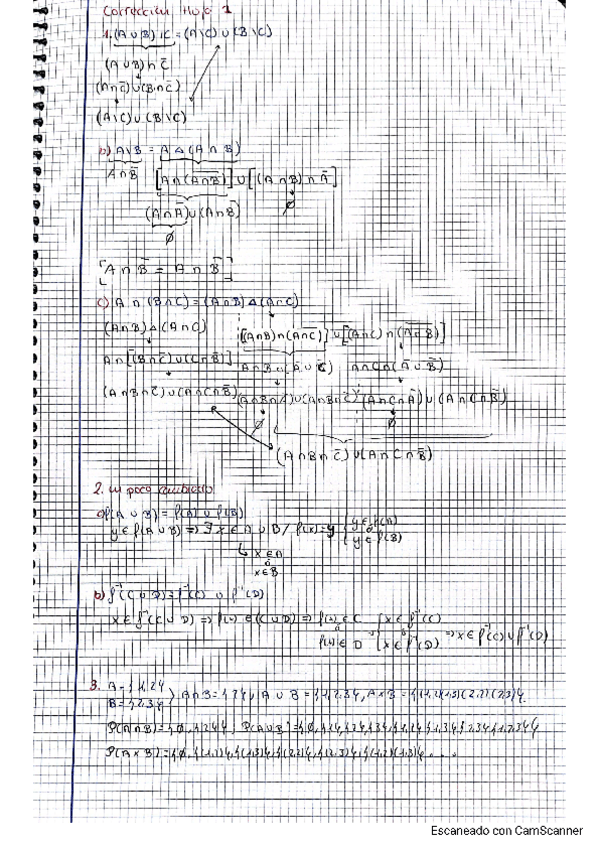 Corrección Hoja 1
1. (A ∪ B) \ C = (A\C) ∪ (B\C)
(A∪B)∩C̅
(A∩C̅)∪(B∩C̅)
(A\C)∪(B\C)
b) A\B = A Δ (A ∩ B)
A∩B̅ [A∩(A̅∩̅B̅)]∪[(A∩B)∩A̅]
∅
(A∩A̅)∪(A∩B̅)
∅
[A∩B̅ = A∩B̅]
c) A ∩ (BΔC) = (A∩B)Δ(A∩C)
(A∩B)Δ(A∩C) [(A∩B)∩(A̅∩̅C̅)]∪[(A∩C)∩(A̅∩̅B̅)]
A∩[(B∩C̅)∪(C∩B̅)] A∩B∩(A̅∪C̅) A∩C∩(A̅∪B̅)
(A∩B∩C̅)∪(A∩C∩B̅) (A∩B∩A̅)∪(A∩B∩C̅) (A∩C∩A̅)∪(A∩C∩B̅)
∅ ∅
(A∩B∩C̅)∪(A∩C∩B̅)
2. un poco cambiado
a) f(A∪B) = f(A)∪f(B)
y∈f(A∪B) => ∃x∈A∪B / f(x)=y { y∈f(A)
o
y∈f(B)
↳ x∈A
o
x∈B
b) f⁻¹(C∪D)=f⁻¹(C) ∪ f⁻¹(D)
x∈f⁻¹(C∪D) => f(x)∈(C∪D) => f(x)∈C { x∈f⁻¹(C)
f(x)∈D { x∈f⁻¹(D) => x∈f⁻¹(C)∪f⁻¹(D)
3. A={1,2}
B={2,3} } A∩B={2}, A∪B={1,2,3}, A×B={(1,2)(1,3)(2,2)(2,3)}
P(A∩B)={∅,{2}}; P(A∪B)={∅,{1},{2},{3},{1,2},{1,3},{2,3},{1,2,3}}
P(A×B)={∅,{(1,2)},{(1,3)},{(2,2)},{(2,3)},{(1,2)(1,3)}, ...
Escaneado con CamScanner